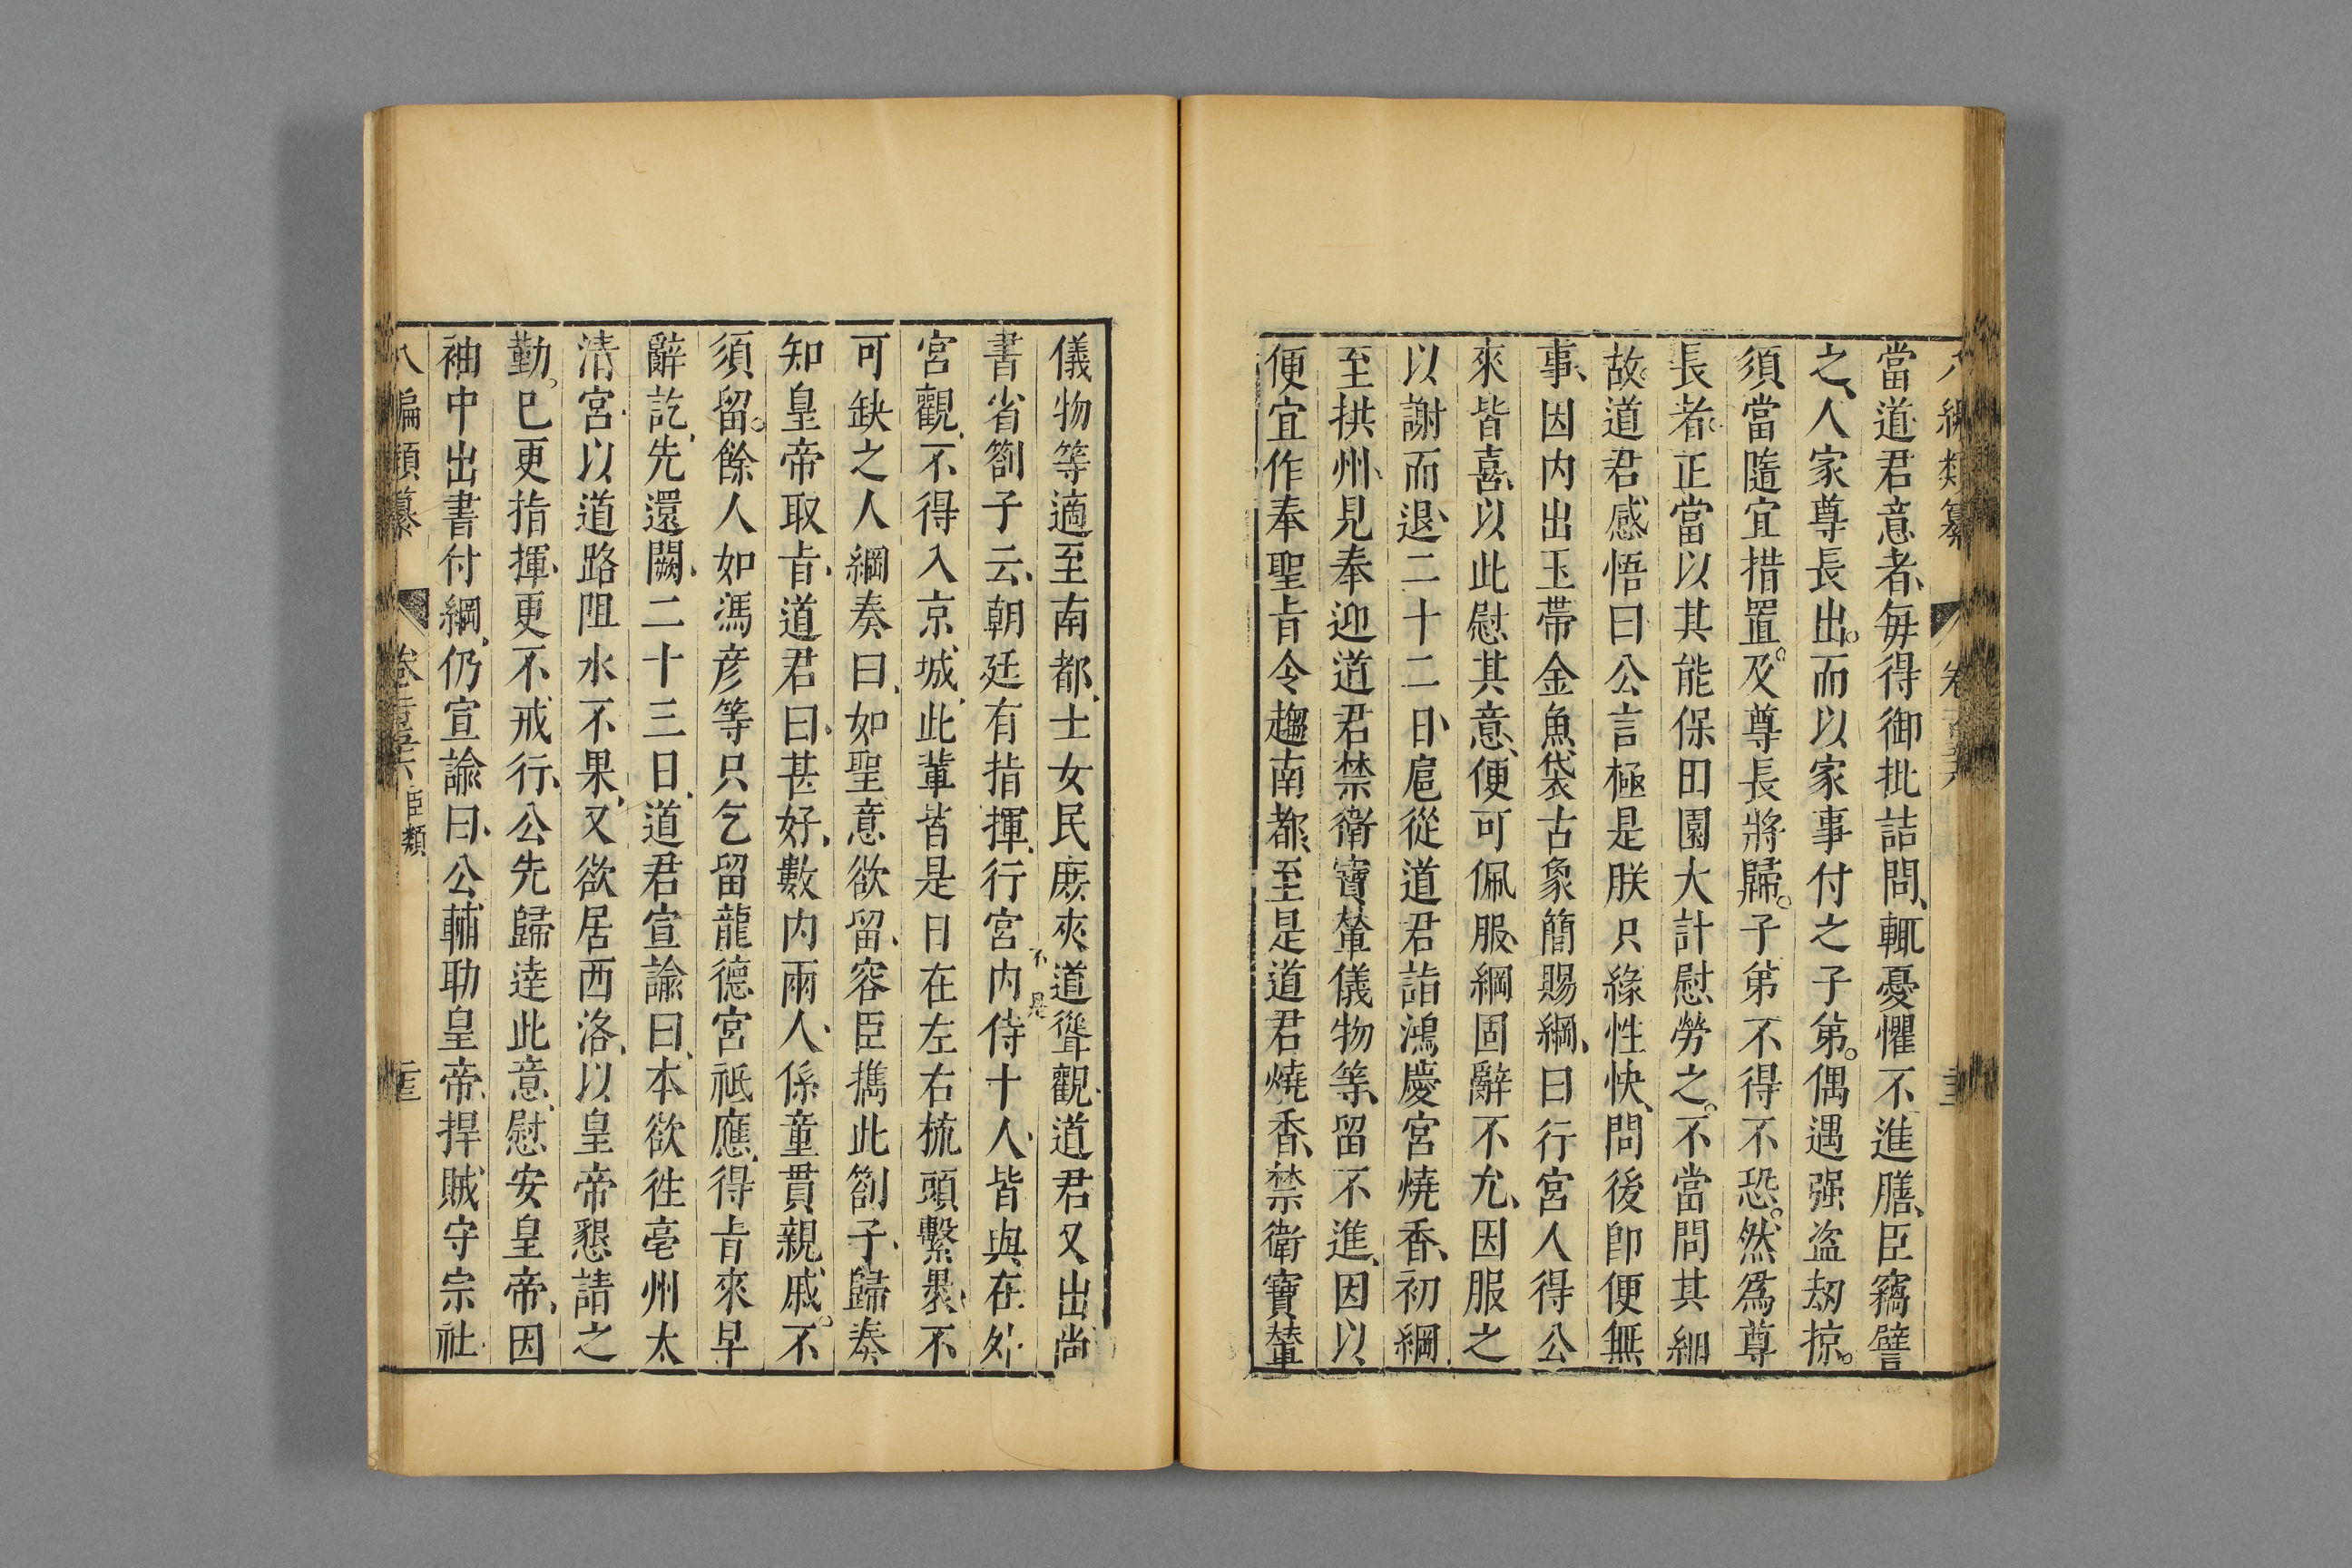 當道君意者、每得御批詰問、輒憂懼不進膳、臣竊譬
之、人家尊長出。而以家事付之子弟。偶遇强盜刼掠。
須當隨宜措置。及尊長將歸。子弟不得不恐。然爲尊
長者。正當以其能保田園大計慰勞之。不當問其細
故。道君感悟曰公言極是朕只緣性快、問後卽便無
事、因内出玉帶金魚袋古象簡賜綱、曰行宮人得公
來皆喜、以此慰其意、便可佩服、綱固辭不允、因服之
以謝而退、二十二日、扈從道君詣鴻慶宮燒香、初綱
至拱州、見奉迎道君禁衛寶輦儀物等、留不進、因以
便宜作奉聖旨令趨南都、至是道君燒香、禁衛寶輦
儀物等適至南都、士女民庶夾道聳觀、道君又出尚
書省劄子云、朝廷有指揮、行宮内侍十人、皆與在外
不是
宮觀、不得入京城、此輩皆是日在左右梳頭繫褁、不
可缺之人綱奏曰、如聖意欲留、容臣擕此劄子、歸奏
知皇帝取旨、道君曰、甚好、數内兩人、係童貫親戚。不
須留。餘人如馮彦等只乞留龍德宮祗應、得旨來早
辭訖、先還闕、二十三日、道君宣諭曰、本欲徃亳州太
清宮、以道路阻水不果、又欲居西洛、以皇帝懇請之
勤。已更指揮、更不戒行、公先歸逹此意、慰安皇帝、因
袖中出書付綱、仍宣諭曰、公輔助皇帝、捍賊守宗社、
八編類纂
臣類